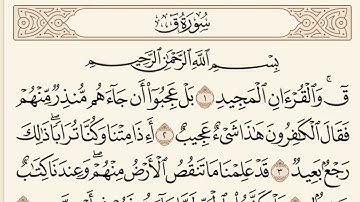 سُورَةُ قٓ
بِسْمِ ٱللَّهِ ٱلرَّحْمَٰنِ ٱلرَّحِيمِ
قٓ ۚ وَٱلْقُرْءَانِ ٱلْمَجِيدِ ١ بَلْ عَجِبُوٓا۟ أَن جَآءَهُم مُّنذِرٌ مِّنْهُمْ
فَقَالَ ٱلْكَٰفِرُونَ هَٰذَا شَىْءٌ عَجِيبٌ ٢ أَءِذَا مِتْنَا وَكُنَّا تُرَابًا ۖ ذَٰلِكَ
رَجْعٌۢ بَعِيدٌ ٣ قَدْ عَلِمْنَا مَا تَنقُصُ ٱلْأَرْضُ مِنْهُمْ ۖ وَعِندَنَا كِتَٰبٌ